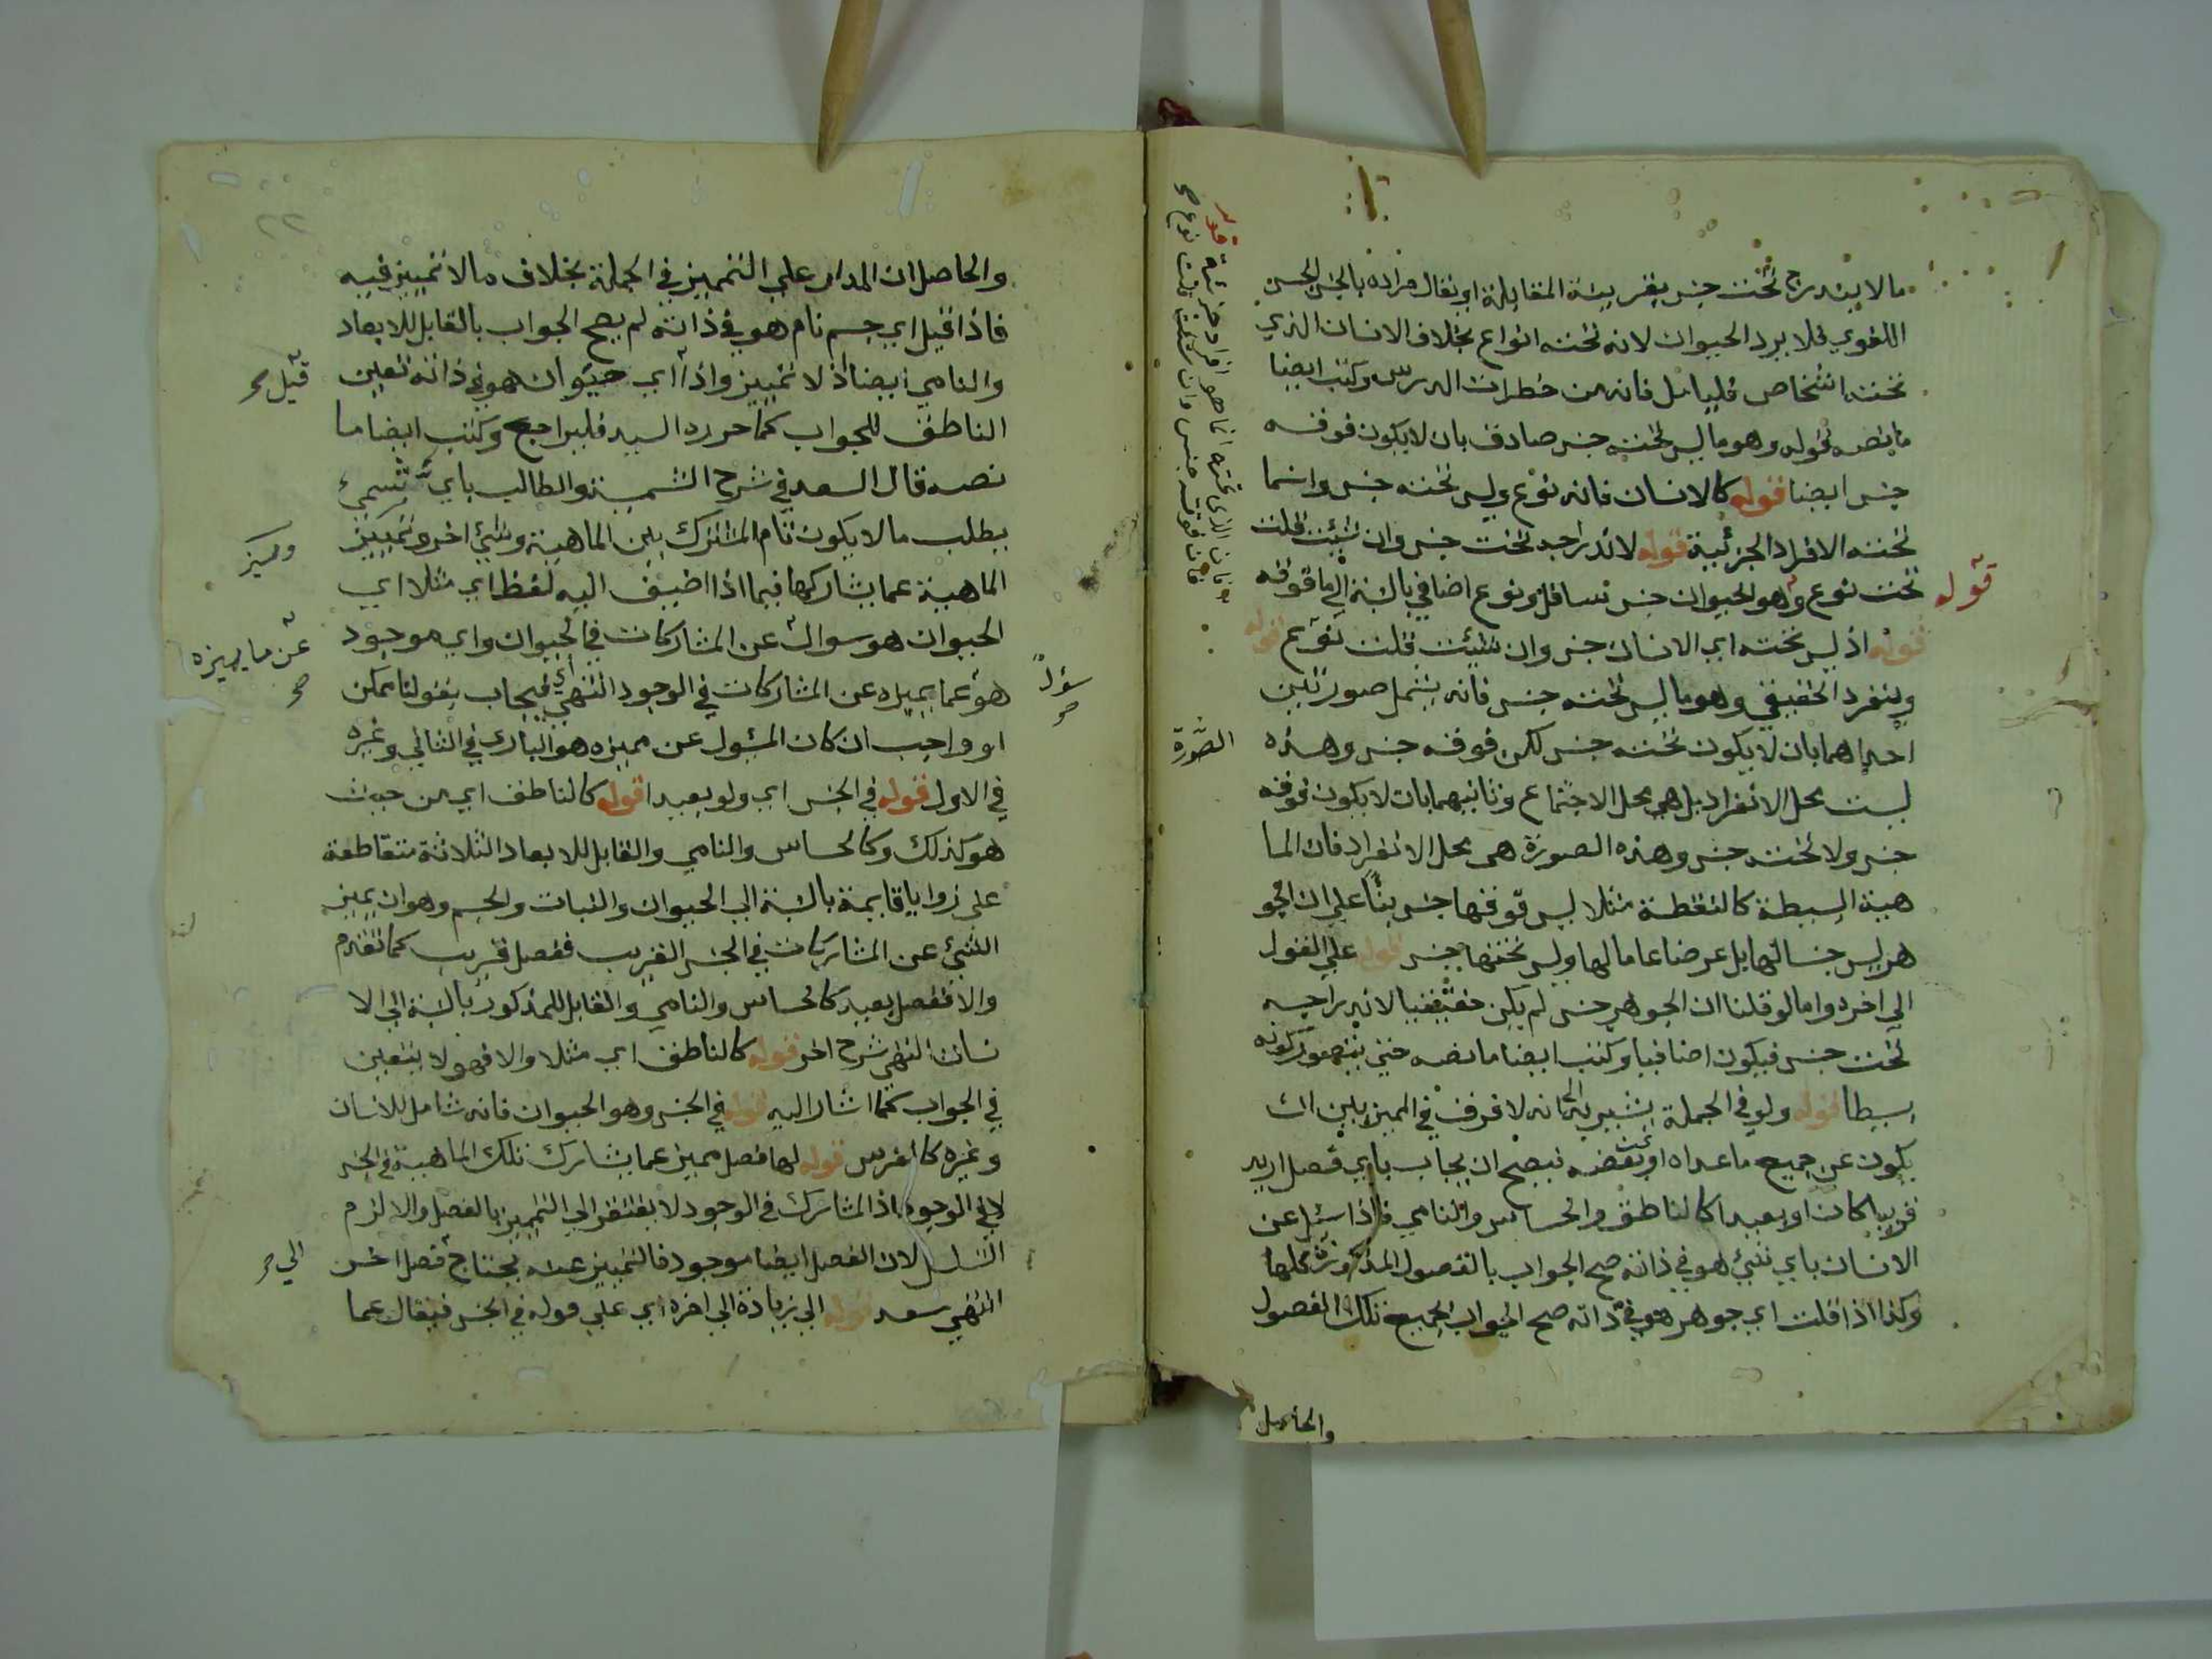 مالا يندرج تحت جنس بقرينة المقابلة او يقال مراده بالجنس الجنس
اللغوي فلا يرد الحيوان لانه تحته انواع بخلاف الانسان الذي
تحته اشخاص فليتامل فانه من خطرات الدرس وكتب ايضا
ما نصه قوله وهو ما ليس تحته جنس صادق بان لا يكون فوقه
جنس ايضا قوله كالانسان فانه نوع وليس تحته جنس وانما
تحته الافراد الجزئية قوله لاندراجه تحت جنس وان شئت قلت
تحت نوع وهو الحيوان جنس سافل ونوع اضافي بالنسبة الى ما فوقه
قوله اذ ليس تحته اي الانسان جنس وان شئت قلت نوع قوله
وينفرد الحقيقي وهو ما ليس تحته جنس فانه يشمل صورتين
احداهما بان لا يكون تحته جنس لكن فوقه جنس وهذه
ليست محل الانفراد بل هي محل الاجتماع وثانيهما بان لا يكون فوقه
جنس ولا تحته جنس وهذه الصورة هي محل الانفراد فان الما
هية البسيطة كالنقطة مثلا ليس فوقها جنس بناء على ان الجو
هر ليس جنسا لها بل عرضا عاما لها وليس تحتها جنس قوله على القول
الى اخره واما لو قلنا ان الجوهر جنس لم يكن حقيقيا لاندراجه
تحت جنس فيكون اضافيا وكتب ايضا ما نصه حتى يتصور كونه
بسيطا قوله ولو في الجملة يشير به الى انه لا فرق في المميز بين ان
يكون عن جميع ما عداه او بعضه فيصح ان يجاب باي فصل اريد
قريبا كان او بعيدا كالناطق والحساس والنامي فاذا سئل عن
الانسان باي شيء هو في ذاته صح الجواب بالفصول المذكورة كلها
وكذا اذا قلت اي جوهر هو في ذاته صح الجواب بجميع تلك الفصول
والحاصل
قوله
الصورة
والحاصل ان المدار على التمييز في الجملة بخلاف ما لا تمييز فيه
فاذا قيل اي جسم نام هو في ذاته لم يصح الجواب بالقابل للابعاد
والنامي ايضا اذ لا تمييز واذا اي حيوان هو في ذاته تعين
الناطق للجواب كما حرره السيد فليراجع وكتب ايضا ما
نصه قال السعد في شرح الشمسية والطالب باي شيء
يطلب ما لا يكون تمام المشترك بين الماهية وشيء اخر وتمييز
الماهية عما يشاركها فيما اذا اضيف اليه لفظ اي مثلا اي
الحيوان هو سوال عن المشاركات في الحيوان واي موجود
هو عما يميزه عن المشاركات في الوجود انتهى اي فيجاب بقولنا ممكن
او واجب ان كان المسئول عن مميزه هو الباري في الثاني وغيره
في الاول قوله في الجنس اي ولو بعيدا قوله كالناطق اي من حيث
هو كذلك وكالحساس والنامي والقابل للابعاد الثلاثة متقاطعة
على زوايا قايمة بالنسبة الى الحيوان والنبات والجسم وهو ان يميز
الشيء عن المشاركات في الجنس القريب ففصل قريب كما تقدم
والا ففصل بعيد كالحساس والنامي والقابل للمذكور بالنسبة الى الا
نسان انتهى شرح اخر قوله كالناطق اي مثلا والا فهو لا يتعين
في الجواب كما اشار اليه قوله في الجنس وهو الحيوان فانه شامل للانسان
وغيره كالفرس قوله لها فصل مميز عما يشارك تلك الماهية في الجنس
لا في الوجود اذ المشارك في الوجود لا يفتقر الى التمييز بالفصل والا لزم
التسلسل لان الفصل ايضا موجود فالتمييز عنه يحتاج فصل اخر
انتهى سعد قوله الى زيادة الى اخره اي على قوله في الجنس فيقال عما
قيل صح
ومميز
عن ما يميزه
صح
سؤال
صح
الى صح